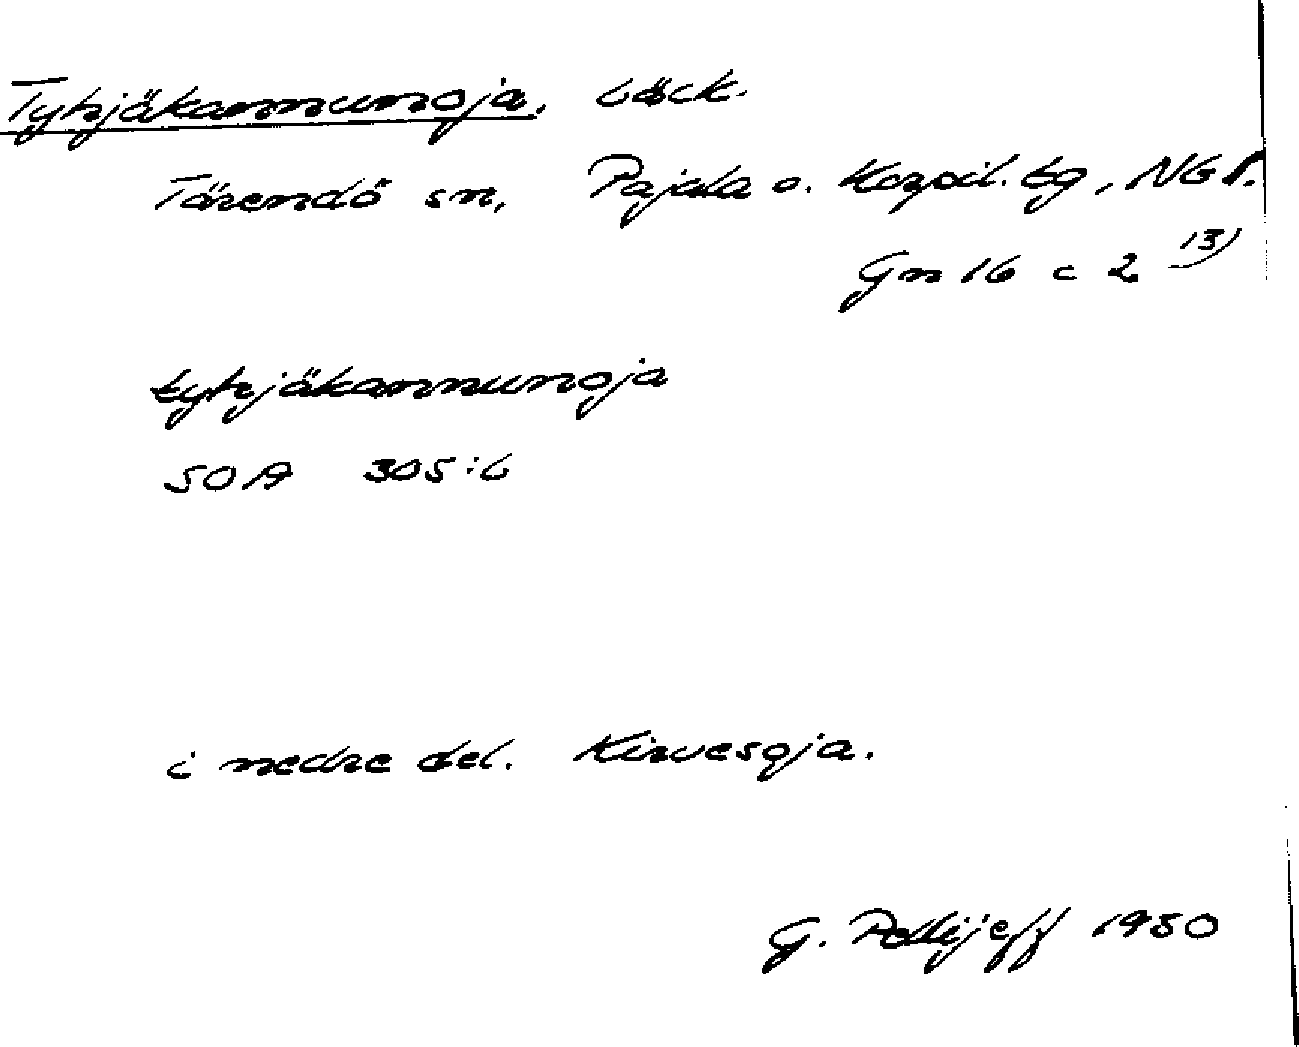 Tyhjäkannunoja, bäck.
Tärendö sn, Pajala o. Korpil. tg, NGb.
Gn 16 c 2 13)
tyhjäkannunoja
SOA 305:6
i nedre del. Kirvesoja.
G. Pellijeff 1950